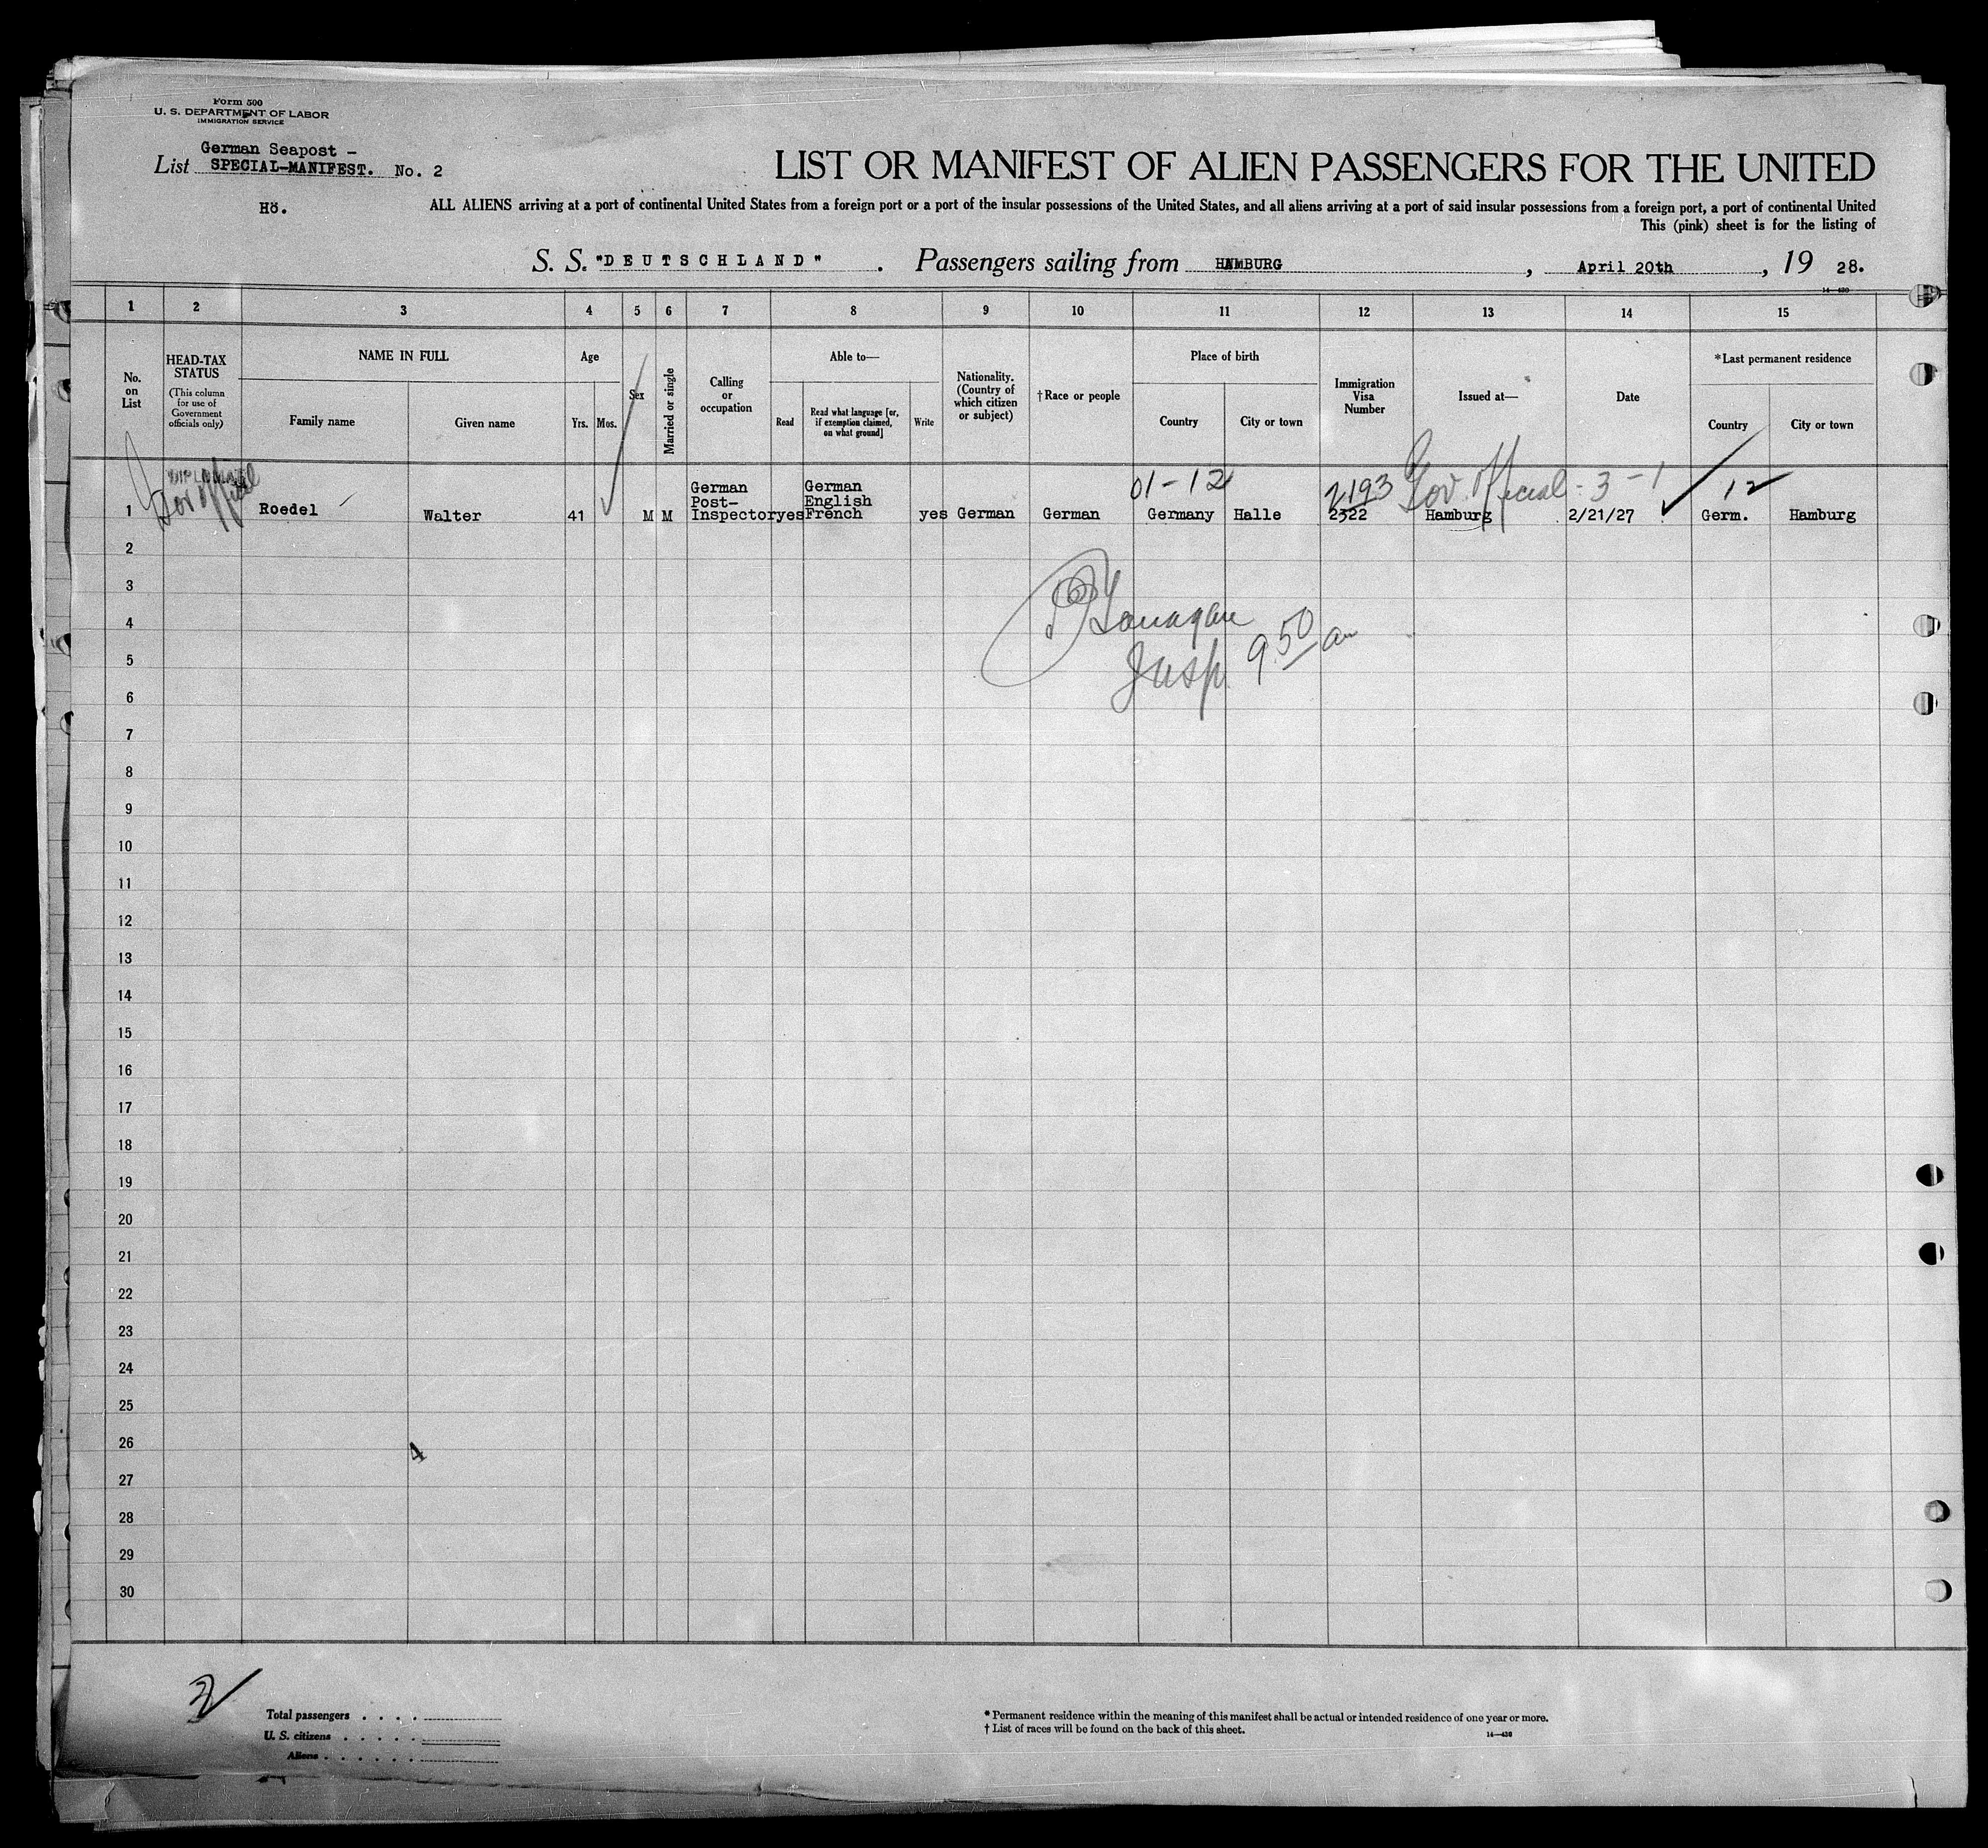 Form 500
U. S. DEPARTMENT OF LABOR
IMMIGRATION SERVICE
German Seapost –
List SPECIAL-MANIFEST. No. 2
Hö.
LIST OR MANIFEST OF ALIEN PASSENGERS FOR THE UNITED
ALL ALIENS arriving at a port of continental United States from a foreign port or a port of the insular possessions of the United States, and all aliens arriving at a port of said insular possessions from a foreign port, a port of continental United
This (pink) sheet is for the listing of
S. S. "DEUTSCHLAND". Passengers sailing from HAMBURG, April 20th, 19 28.
14—430
1 2 3 4 5 6 7 8 9 10 11 12 13 14 15
No. on List
HEAD-TAX STATUS
(This column for use of Government officials only)
NAME IN FULL
Family name
Given name
Age
Yrs.
Mos.
Sex
Married or single
Calling or occupation
Able to—
Read
Read what language [or, if exemption claimed, on what ground]
Write
Nationality. (Country of which citizen or subject)
†Race or people
Place of birth
Country
City or town
Immigration Visa Number
Issued at—
Date
*Last permanent residence
Country
City or town
Gov official
01-12 2193 Gov. Official - 3 - 1 12
German German
Post- English
1 Roedel Walter 41 M M Inspector yes French yes German German Germany Halle 2322 Hamburg 2/21/27 Germ. Hamburg
2
3
4
Insp. 9.50 am
5
6
7
8
9
10
11
12
13
14
15
16
17
18
19
20
21
22
23
24
25
26
4
27
28
29
30
Total passengers
U. S. citizens
Aliens
* Permanent residence within the meaning of this manifest shall be actual or intended residence of one year or more.
† List of races will be found on the back of this sheet.
14—430